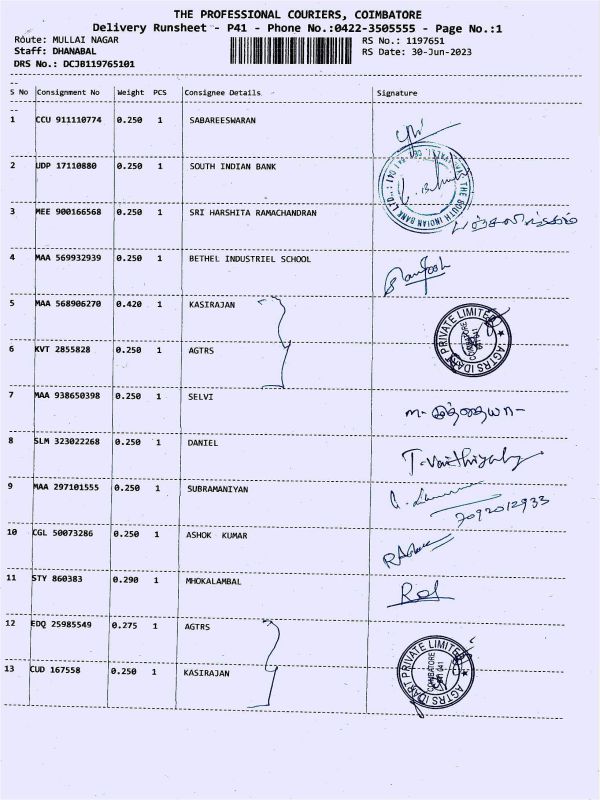 THE PROFESSIONAL COURIERS, COIMBATORE
Delivery Runsheet - P41 - Phone No.:0422-3505555 - Page No.:1
Route: MULLAI NAGAR RS No.: 1197651
Staff: DHANABAL RS Date: 30-Jun-2023
DRS No.: DCJB119765101
S No Consignment No Weight PCS Consignee Details Signature
1 CCU 911110774 0.250 1 SABAREESWARAN
2 UDP 17110880 0.250 1 SOUTH INDIAN BANK
THE SOUTH INDIAN BANK LTD
3 MEE 900166568 0.250 1 SRI HARSHITA RAMACHANDRAN
4 MAA 569932939 0.250 1 BETHEL INDUSTRIEL SCHOOL
5 MAA 568906270 0.420 1 KASIRAJAN
AGTRS IDART PRIVATE LIMITED
6 KVT 2855828 0.250 1 AGTRS
7 MAA 938650398 0.250 1 SELVI
8 SLM 323022268 0.250 1 DANIEL
9 MAA 297101555 0.250 1 SUBRAMANIYAN
7092012933
10 CGL 50073286 0.250 1 ASHOK KUMAR
11 STY 860383 0.290 1 MHOKALAMBAL
12 EDQ 25985549 0.275 1 AGTRS
AGTRS IDART PRIVATE LIMITED
COIMBATORE
13 CUD 167558 0.250 1 KASIRAJAN